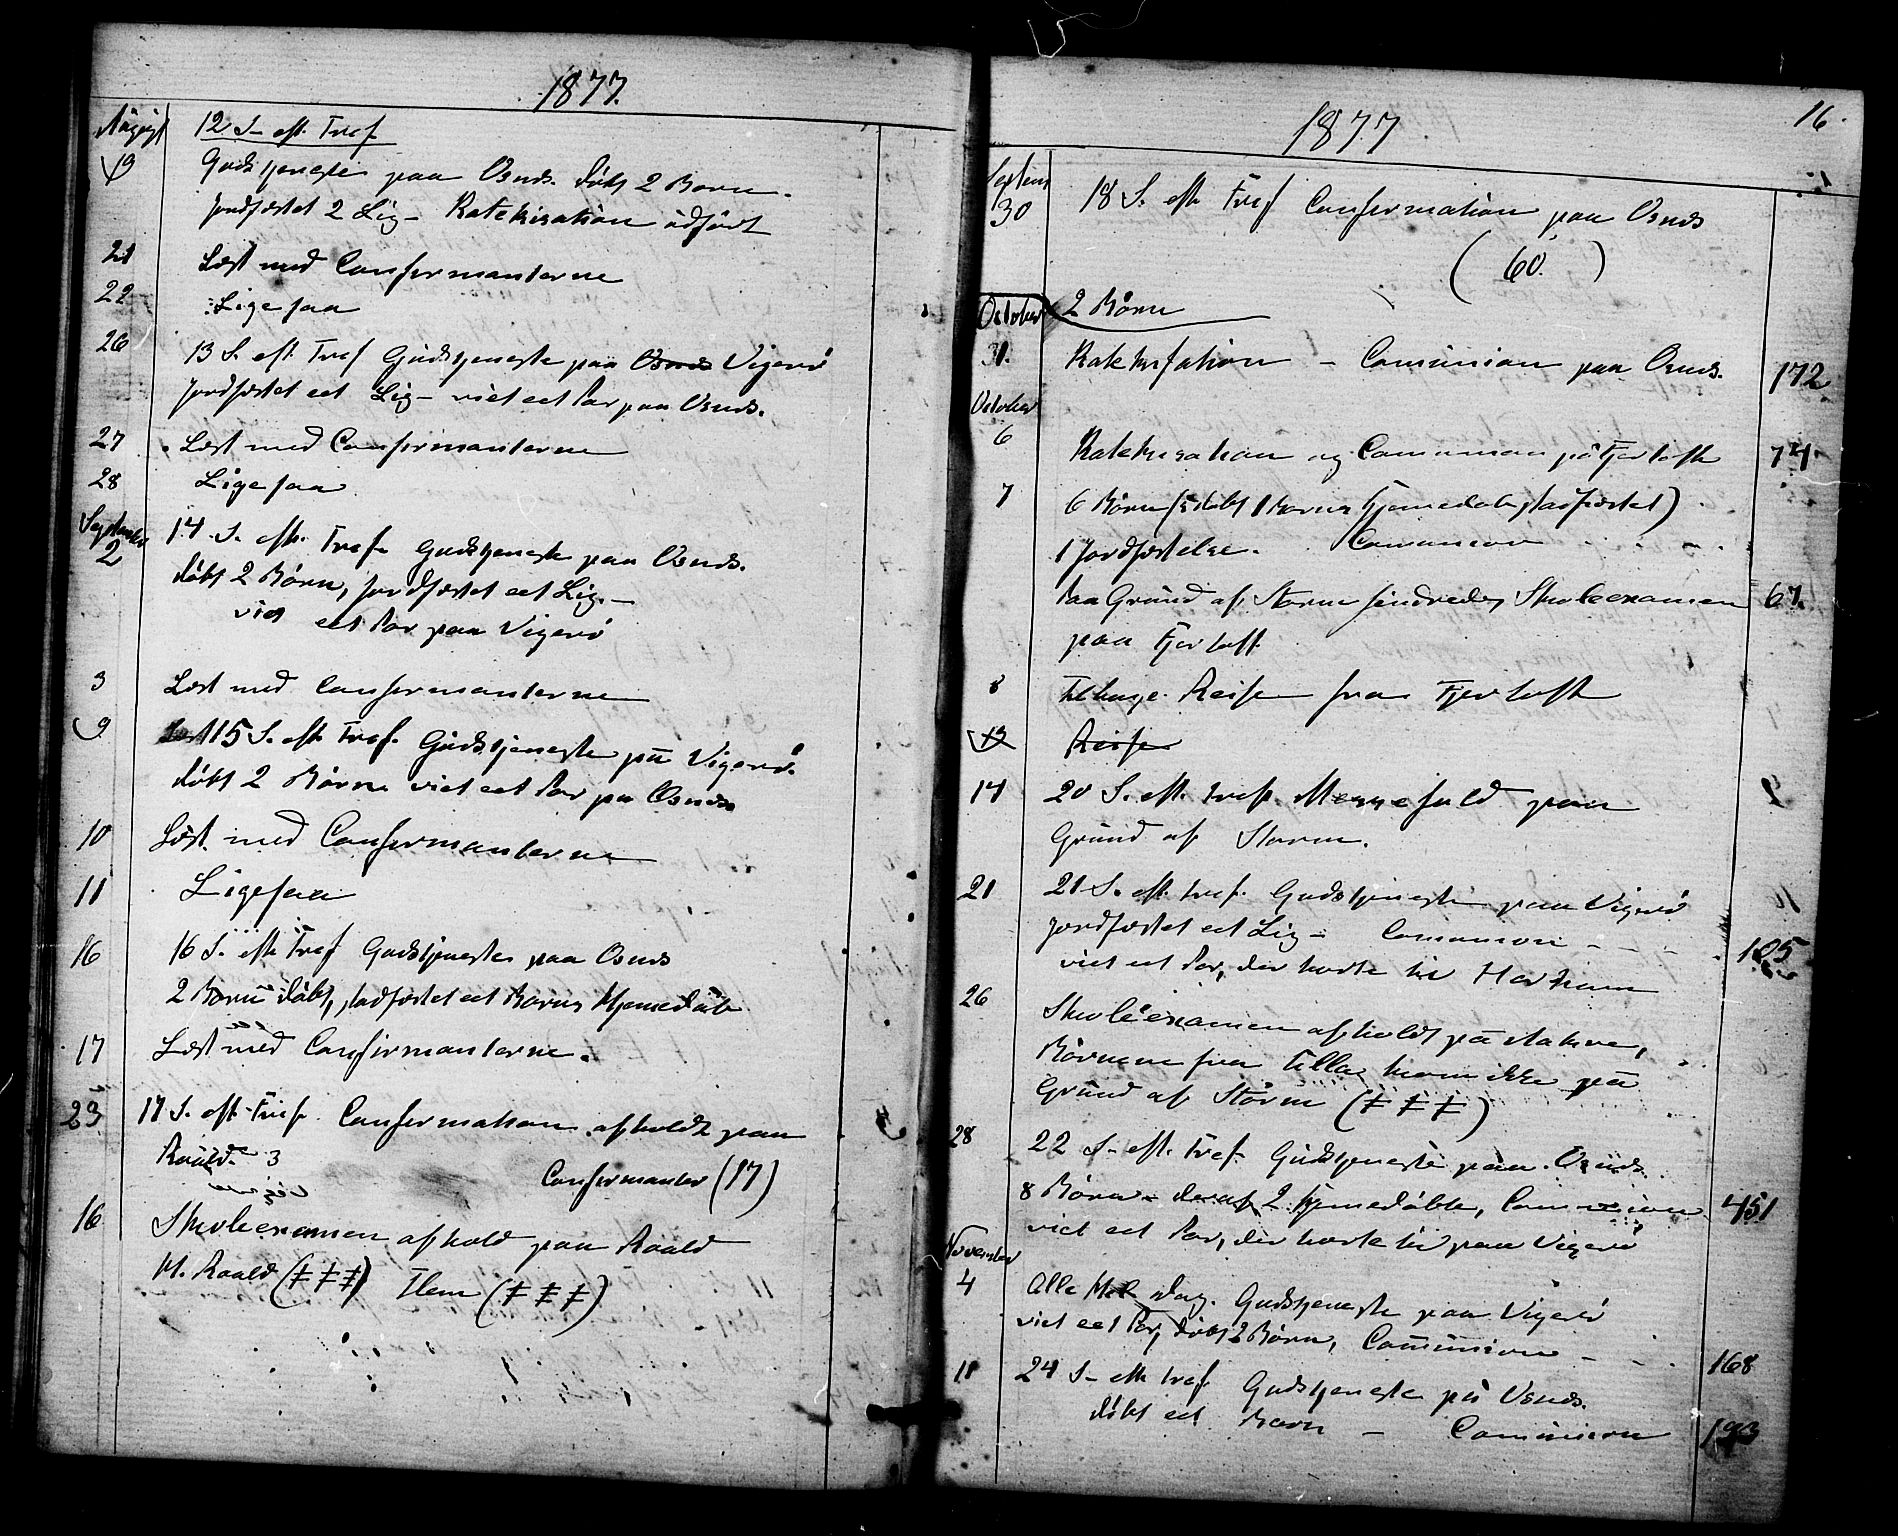 1877.
August 12 S. eft. Tref
19 Gudstjeneste paa Osnæs. døbt 2 Børn -
jordfæstet 2 Lig - Katekisation udført
21 Læst med Confirmanterne
22 Ligesaa
26 13 S. eft. Tref Gudstjeneste paa Osnæs Vigerø
jordfæstet eet Lig - viet eet Par paa Osnæs.
27 Læst med Confirmanterne
28 Ligesaa
September 14 S. eft. Tref. Gudstjeneste paa Osnæs.
2 døbt 2 Børn, jordfæstet eet Lig. -
viet eet Par paa Vigerø
3 Læst med Confirmanterne
9 15 S. eft. Tref. Gudstjeneste på Vigerø.
døbt 2 Børn viet eet Par på Osnæs
10 Læst med Confirmanterne
11 Ligesaa
16 16 S. eft Tref Gudstjeneste paa Osnæs
2 Børn døbt, stadfæstet eet Barns Hjemedåb
17 Læst med Confirmanterne.
23 17 S. eft. Tref. Confirmation afholdt paa
Roald. 3 Confirmanter (17)
16 Skoleexamen afhold paa Roald
N. Roald (‡ ‡ ‡) Flem (‡ ‡ ‡)
16.
1877
Septemb
30 18 S. eft Tref Confirmation paa Osnæs
(60.)
October 2 Børn
31. Katekisation - Comunion paa Osnæs. 172
October
6 Katekisation og Comunion på Fjørtoft 74
7 6 Børn (5 døbt 1 Barns Hjemedaab stadfæstet)
1 jordfæstelse. Comunion - - -
Paa Grund af Storm hindredes Skoleexamen 67.
paa Fjørtoft.
8 Tilbage Reise fra Fjørtoft
13 Reise
14 20 S. eft. tref. Messefald paa
Grund af Storm.
21 21 S. eft. tref. Gudstjeneste paa Vigerø
jordfæstet eet Lig - Comunion - - - 105
viet eet Par, der hørte til Harham
26 Skoleexamen afholdt på
Børnene fra Ulla kom ikke på
Grund af Storm (‡ ‡ ‡)
28 22 S. eft. Tref. Gudstjeneste paa Osnæs
8 Børn - deraf 2 hjemedøbte, Comunion 451
viet eet Par, der hørte til paa Vigerø
November
4 Alle Hel. Dag. Gudstjeneste paa Vigerø
viet eet Par, døbt 2 Børn, Comunion - - - 168
11 24 S. eft tref. Gudstjeneste på Osnæs.
døbt eet Barn - Comunion 193